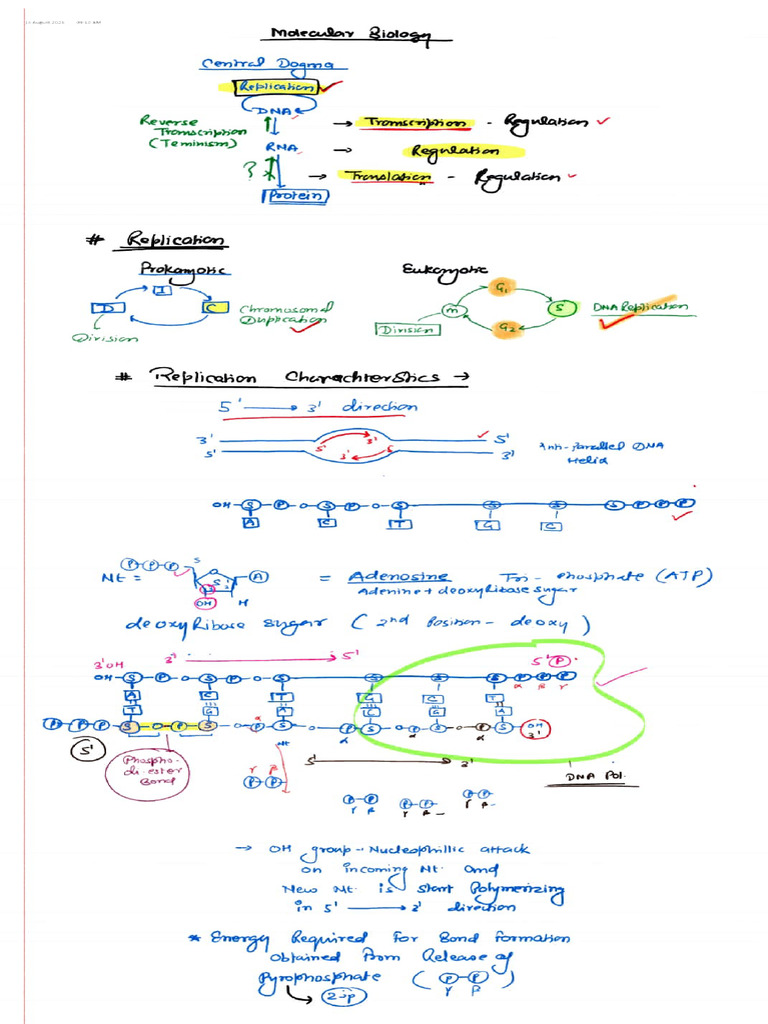 13 August 2025 09:12 AM
Molecular Biology
Central Dogma
Replication
DNA
Reverse
Transcription
(Teminism)
→ Transcription - Regulation
RNA → Regulation
?
→ Translation - Regulation
Protein
# Replication
Prokaryotic
I
D
C
Chromosomal
Duplication
Division
Eukaryotic
G1
M
S
G2
Division
DNA Replication
# Replication Charachterstics →
5' → 3' direction
3' 5'
5' 3' 3' 5'
5' 3'
Anti-Parallel DNA
Helix
OH S P O S P O S S S S P P P
A C T G C
P P P 5
Nt = S 2' A = Adenosine Tri-phosphate (ATP)
OH H Adenine + deoxyRibase sugar
deoxyRibase sugar (2nd Position - deoxy)
3' → 5'
3'OH
5' P
OH S P O S P O S S S S P P P
α β γ
A C T G C T
T G A C G A
P P P S O P S O P S O P S O P S O P S OH
α α α 3'
5'
Phospho-
di-ester
Bond
Nt
γ β
P P
5' → 3'
DNA Pol.
P P P P P P
γ β γ β γ β
→ OH group → Nucleophillic attack
on incoming Nt. and
New Nt. is start Polymerizing
in 5' → 3' direction
* Energy Required For Bond formation
Obtained From Release of
Pyrophosphate (P-P)
γ β
2ip